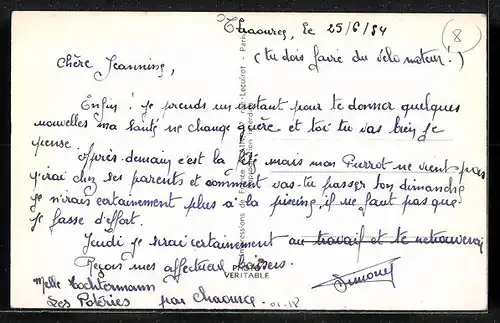 Chaource, le 25/6/54
8
(tu dois faire du vélo moteur!)
Chère Jeannine,
Enfin! je prends un instant pour te donner quelques
nouvelles ma santé ne change guère et toi tu vas bien je
pense.
Après-demain c'est la fête mais mon Pierrot ne vient pas
j'irai chez ses parents et comment vas-tu passer ton dimanche
je n'irais certainement plus à la piscine, il ne faut pas que
je fasse d'effort.
Jeudi je serai certainement au travail et te retrouverai
Reçois mes affectueux baisers.
PHOTO
VERITABLE
Simone
Melle
Les Poteries par Chaource
01-18